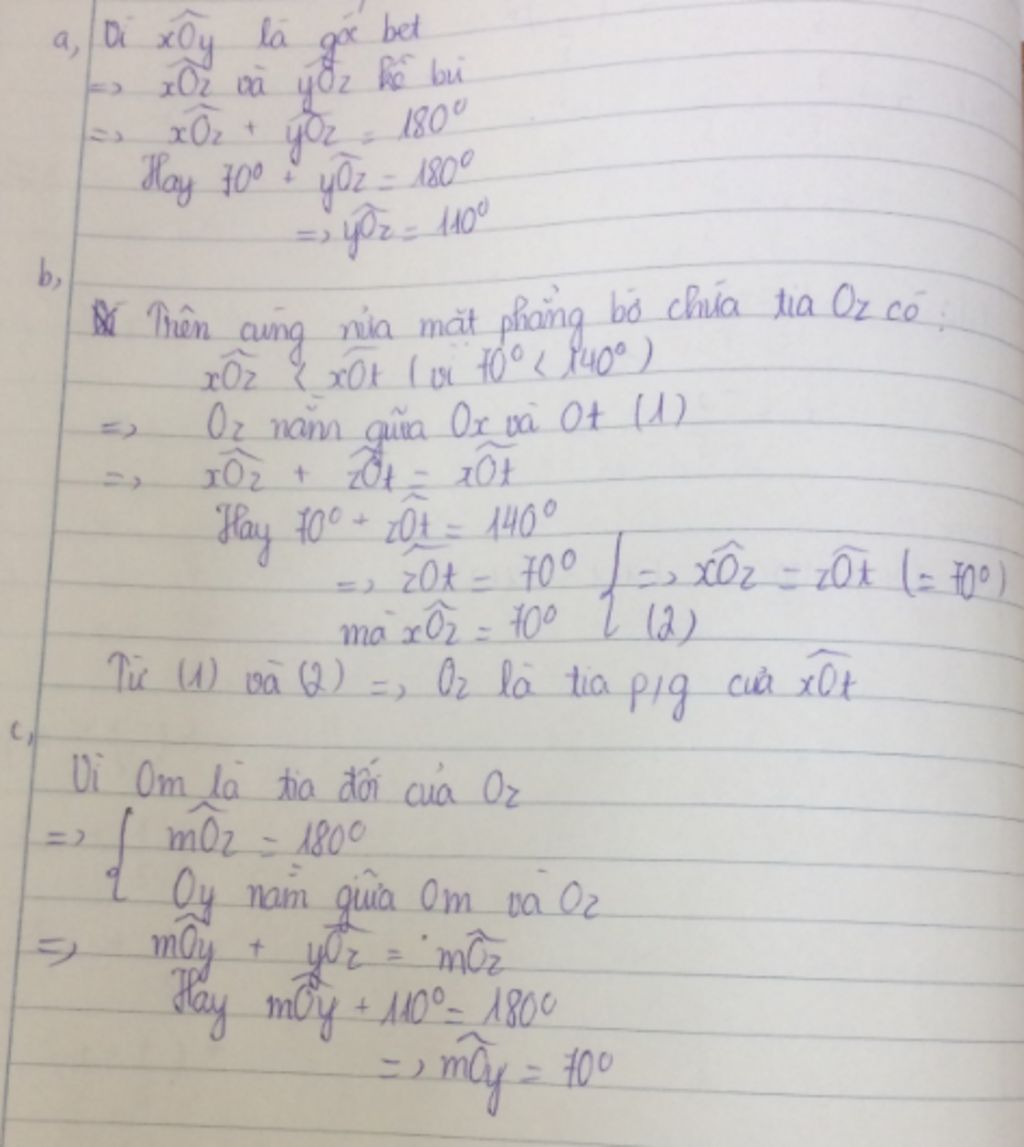 a, Vì xÔy là góc bẹt
=> xÔz và yÔz kề bù
=> xÔz + yÔz = 180⁰
Hay 70⁰ + yÔz = 180⁰
=> yÔz = 110⁰
b,
Trên cùng nửa mặt phẳng bờ chứa tia Oz có:
xÔz < xÔt (vì 70⁰ < 140⁰)
=> Oz nằm giữa Ox và Ot (1)
=> xÔz + zÔt = xÔt
Hay 70⁰ + zÔt = 140⁰
=> zÔt = 70⁰ } => xÔz = zÔt (= 70⁰)
mà xÔz = 70⁰ (2)
Từ (1) và (2) => Oz là tia p/g của xÔt
c,
Vì Om là tia đối của Oz
=> { mÔz = 180⁰
Oy nằm giữa Om và Oz
=> mÔy + yÔz = mÔz
Hay mÔy + 110⁰ = 180⁰
=> mÔy = 70⁰